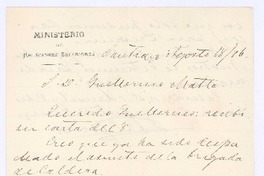 MINISTERIO
DE
RELACIONES EXTERIORES
Santiago Agosto 18/06
S. D. Guillermo Matta
Querido Guillermo: recibí
su carta del 9.
Creo que ya ha sido despa
chado el asunto de la brigada
de Caldera.